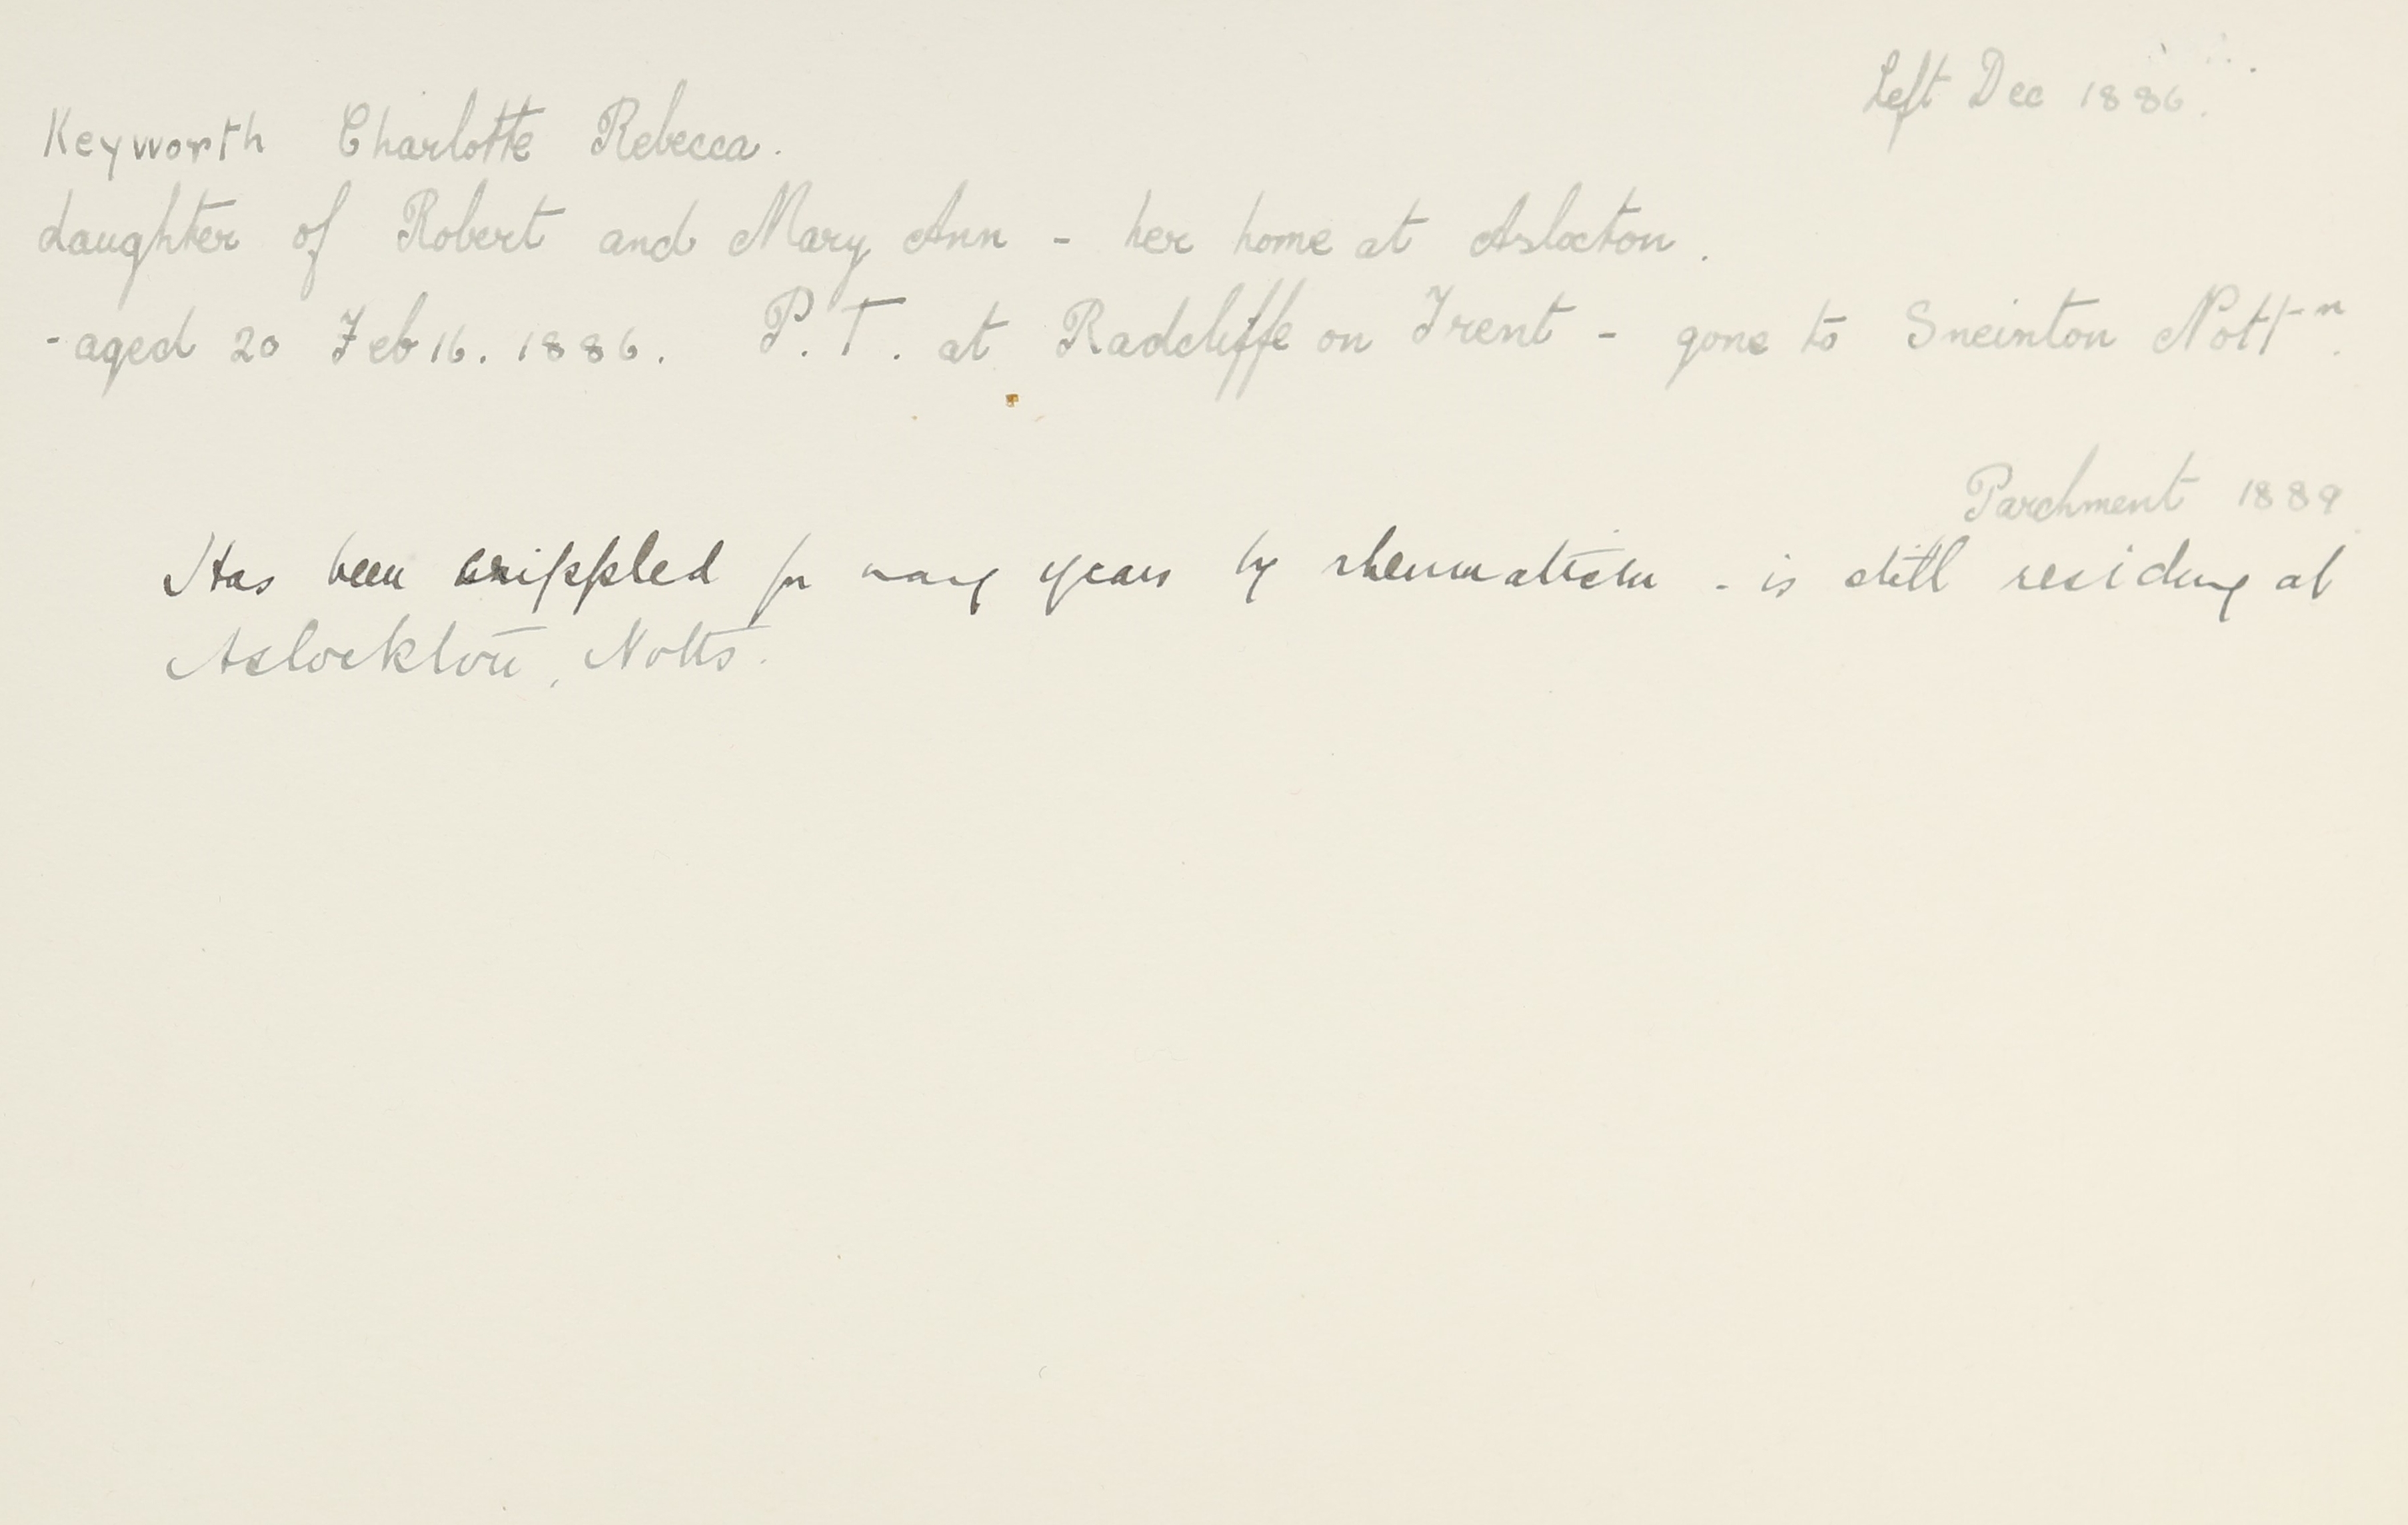 Left Dec 1886.
Keyworth Charlotte Rebecca.
daughter of Robert and Mary Ann - her home at Aslocton.
- aged 20 Feb 16. 1886. P.T. at Radcliffe on Trent - gone to Sneinton Nott-n.
Parchment 1889.
Has been crippled for many years by rheumatism - is still residing at
Aslockton, Notts.